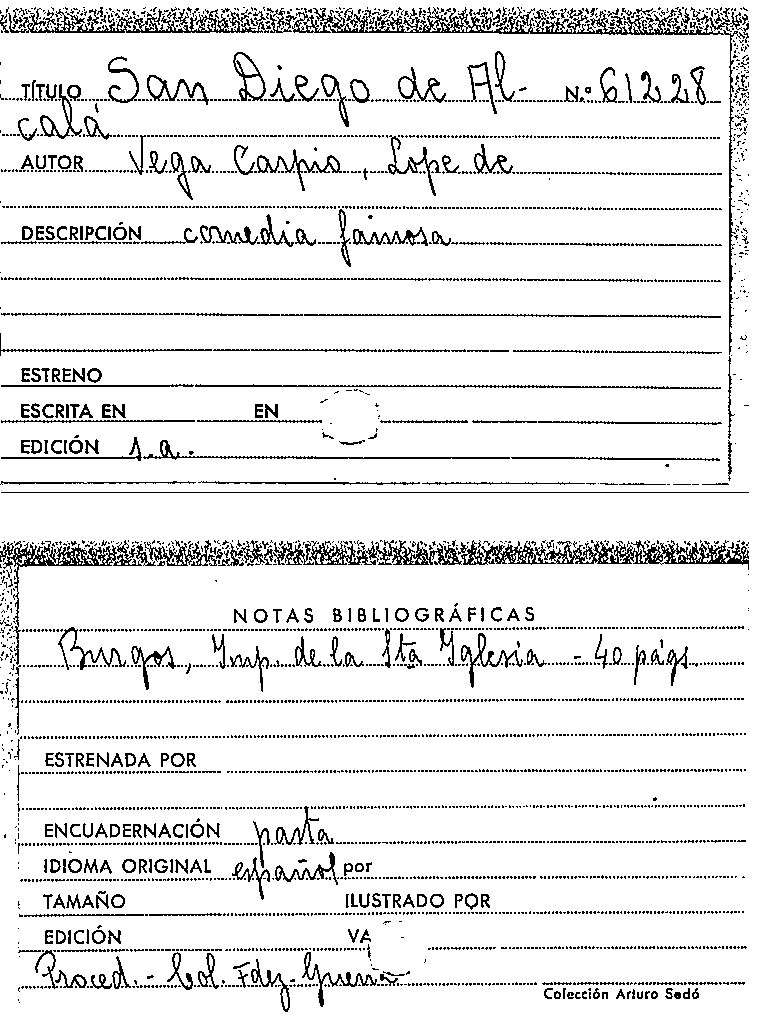 TÍTULO San Diego de Al- N.º 61228
calá
AUTOR Vega Carpio, Lope de
DESCRIPCIÓN comedia famosa
ESTRENO
ESCRITA EN EN
EDICIÓN s.a.
NOTAS BIBLIOGRÁFICAS
Burgos, Imp. de la Sta Iglesia - 40 págs.
ESTRENADA POR
ENCUADERNACIÓN pasta
IDIOMA ORIGINAL español por
TAMAÑO ILUSTRADO POR
EDICIÓN VA
Proced.- Col. Fdez-Guerra
Colección Arturo Sedó